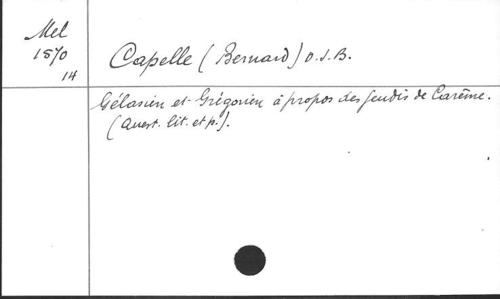 Mel
1570
14
Capelle (Bernard) O.S.B.
Gélasien et Grégorien à propos des jeudis de Carême.
(Quest. lit. et p.).